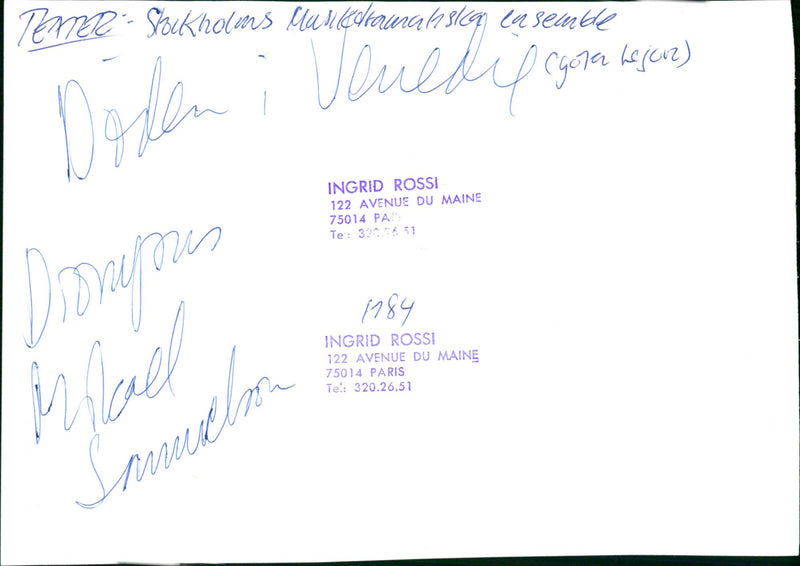 TEATER:- Stockholms Musikdramatiska ensemble
Döden i Venedig
INGRID ROSSI
122 AVENUE DU MAINE
75014 PA
Tel: 320.26 51
Dionysus
Mikael
Samuelson
1984
INGRID ROSSI
122 AVENUE DU MAINE
75014 PARIS
Tel: 320.26.51